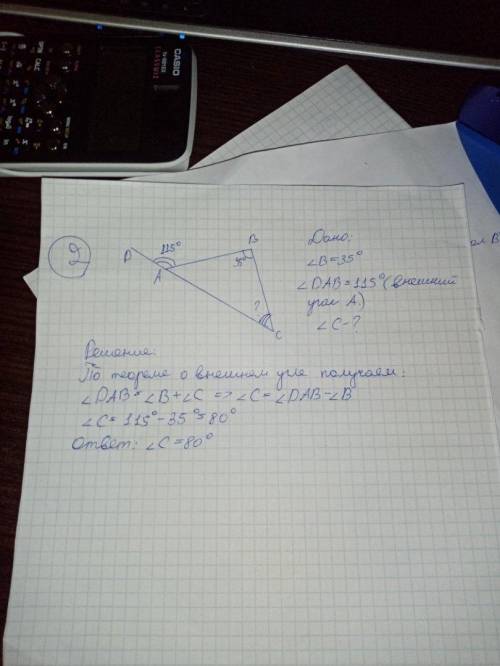 CASIO
CLASSWIZ
2
D
115°
A
B
35°
?
C
Дано:
∠B=35°
∠DAB=115° (внешний
угол A.)
∠C-?
Решение:
По теореме о внешнем угле получаем:
∠DAB=∠B+∠C => ∠C=∠DAB-∠B
∠C=115°-35°=80°
Ответ: ∠C=80°